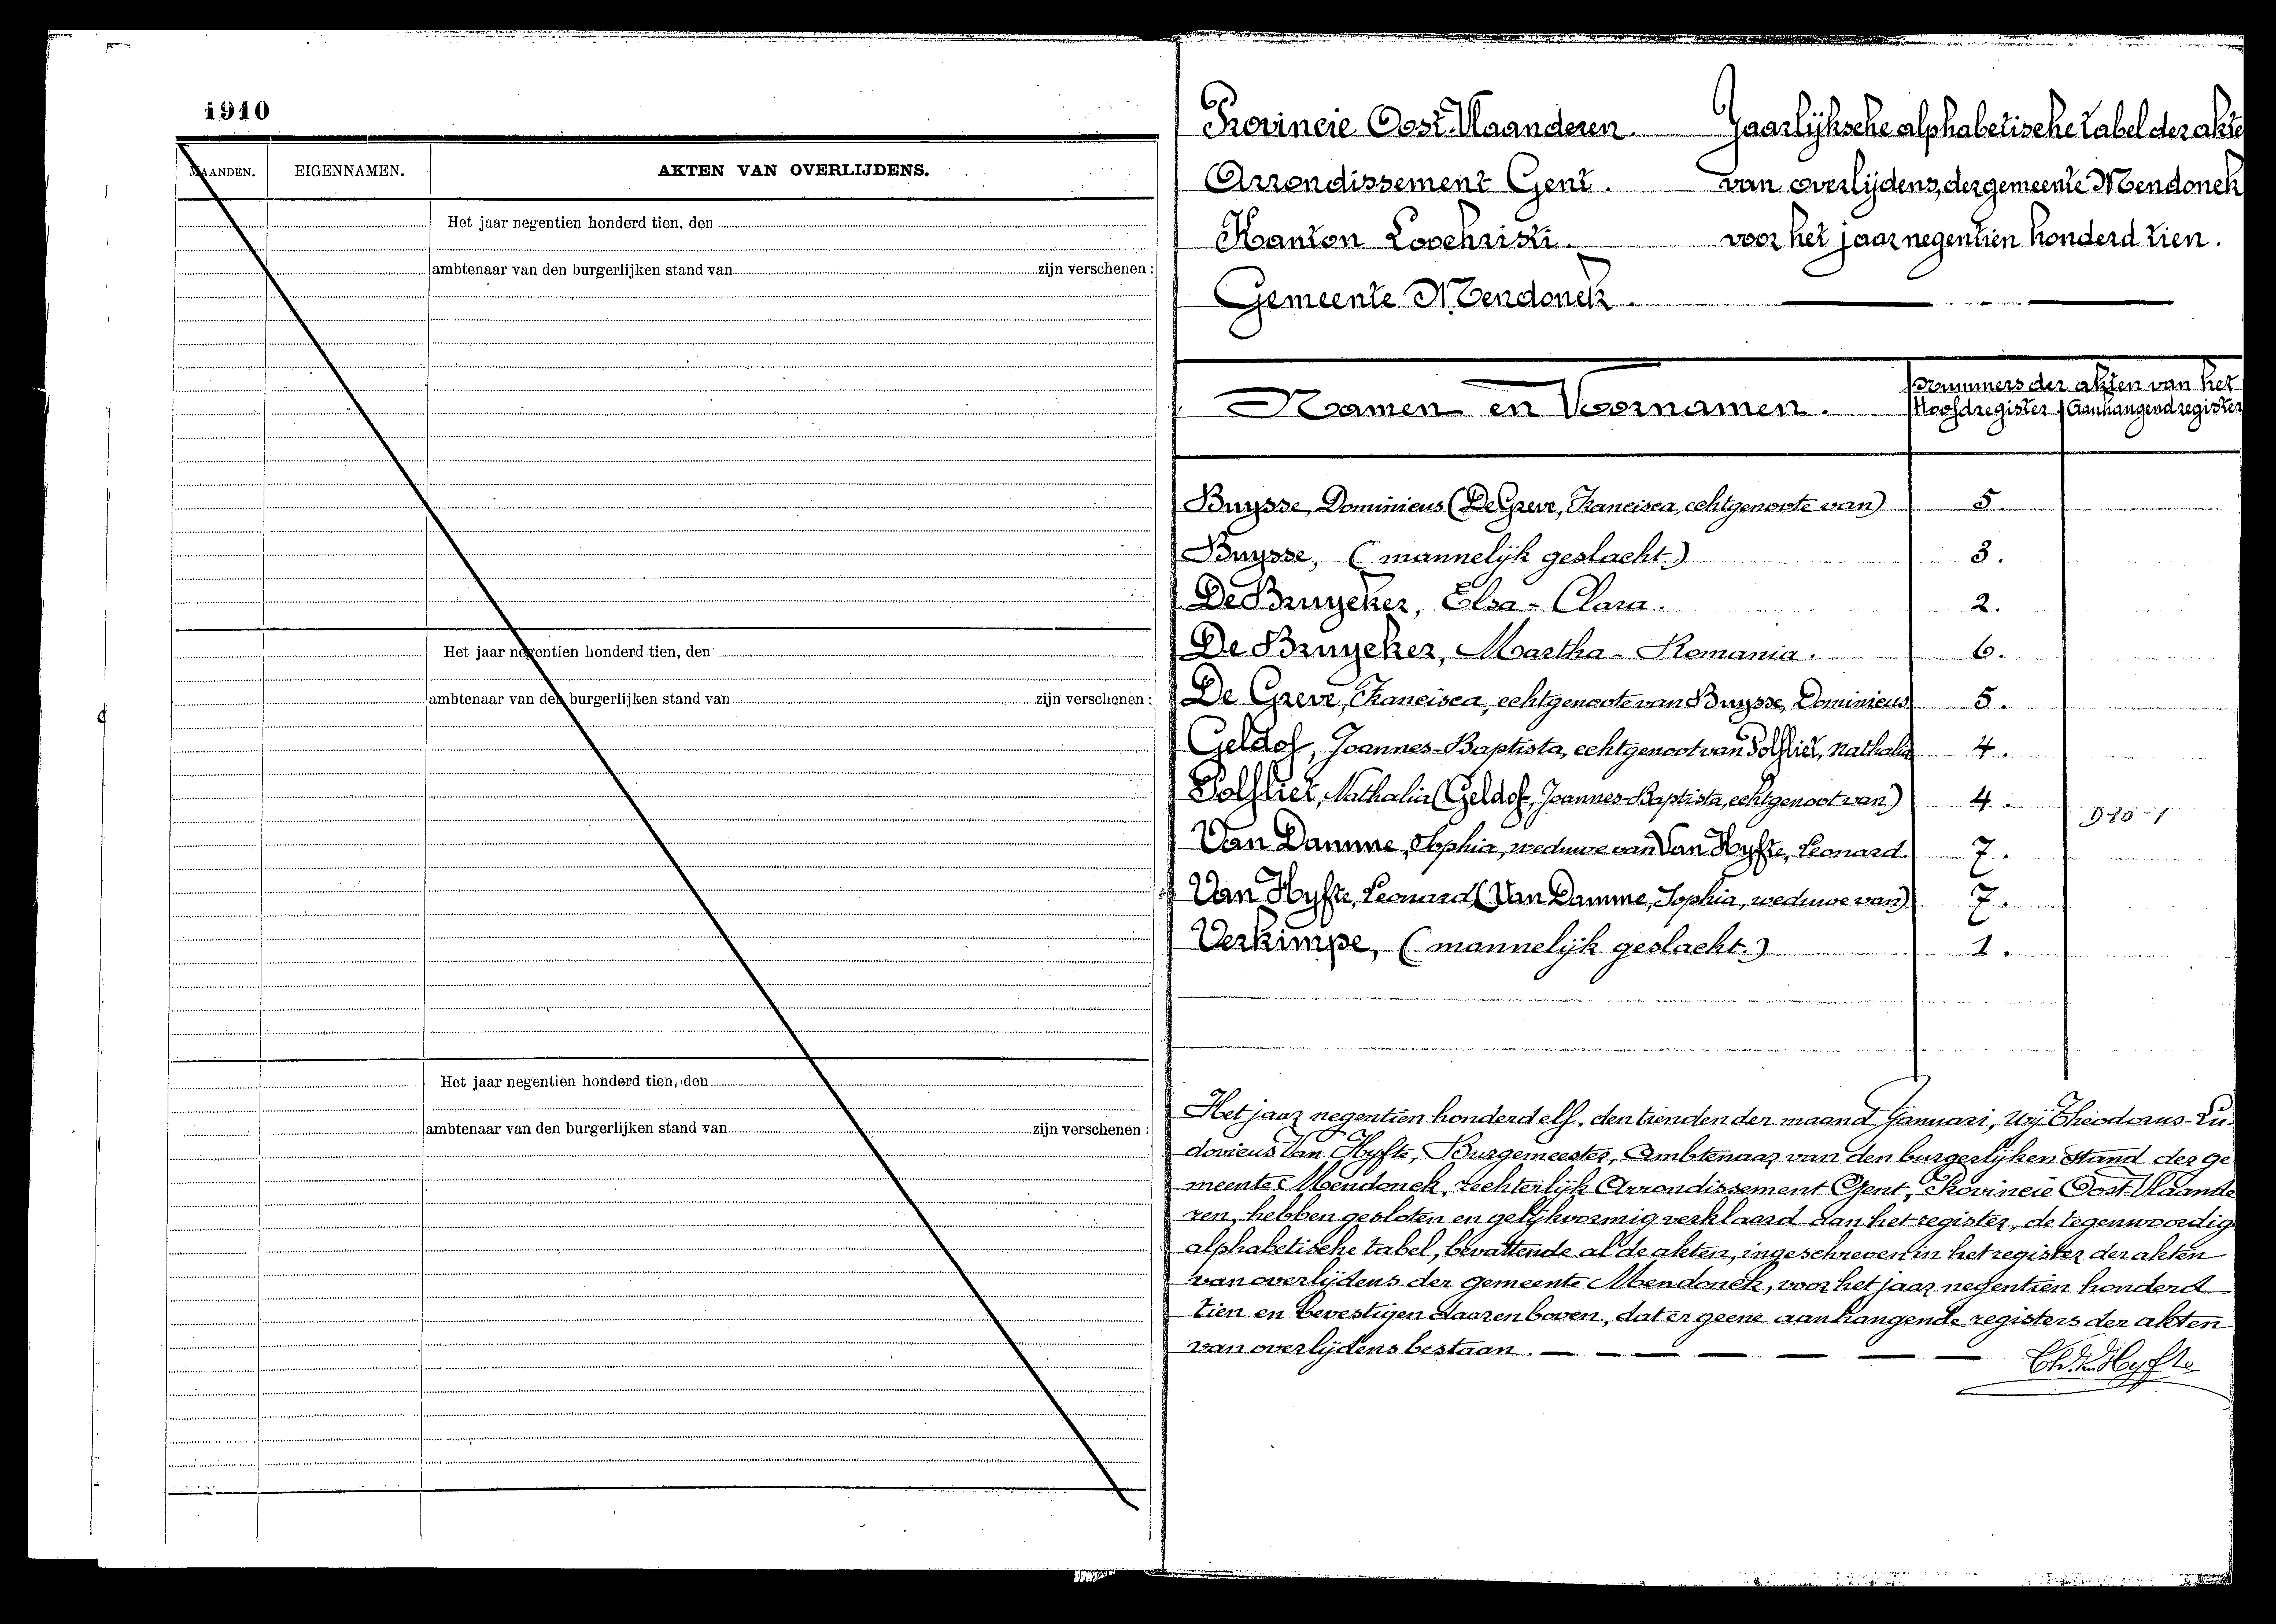 1910
MAANDEN. EIGENNAMEN. AKTEN VAN OVERLIJDENS.
Het jaar negentien honderd tien, den
ambtenaar van den burgerlijken stand van zijn verschenen :
Het jaar negentien honderd tien, den
ambtenaar van den burgerlijken stand van zijn verschenen :
Het jaar negentien honderd tien, den
ambtenaar van den burgerlijken stand van zijn verschenen :
Provincie Oost-Vlaanderen. Jaarlijksche alphabetische tabel der akte
Arrondissement Gent. van overlijdens, der gemeente Mendonck
Kanton Loochristi. voor het jaar negentien honderd tien.
Gemeente Mendonck.
Namen en Voornamen. Nummers der akten van het
Hoofdregister Aanhangend register
Buysse, Dominicus (De Greve, Francisca, echtgenoote van) 5.
Buysse, (mannelijk geslacht.) 3.
De Bruycker, Elsa-Clara. 2.
De Bruycker, Martha-Romania. 6.
De Greve, Francisca, echtgenoote van Buysse, Dominicus 5.
Geldof, Joannes-Baptista, echtgenoot van Polfliet, Nathalia 4.
Polfliet, Nathalia (Geldof, Joannes-Baptista, echtgenoot van) 4.
D 10-1
Van Damme, Sophia, weduwe van Van Hyfte, Leonard. 7.
Van Hyfte, Leonard (Van Damme, Sophia, weduwe van) 7.
Verkimpe, (mannelijk geslacht.) 1.
Het jaar negentien honderd elf, den tienden der maand Januari, Wij Theodorus-Lu-
dovicus Van Hyfte, Burgemeester, Ambtenaar van den burgerlijken stand der ge
meente Mendonck, rechterlijk Arrondissement Gent, Provincie Oost-Vlaande
ren, hebben gesloten en gelijkvormig verklaard aan het register, de tegenwoordig
alphabetische tabel, bevattende al de akten, ingeschreven in het register der akten
van overlijdens der gemeente Mendonck, voor het jaar negentien honderd
tien en bevestigen daarenboven, dat er geene aanhangende registers der akten
van overlijdens bestaan.
Th. Van Hyfte